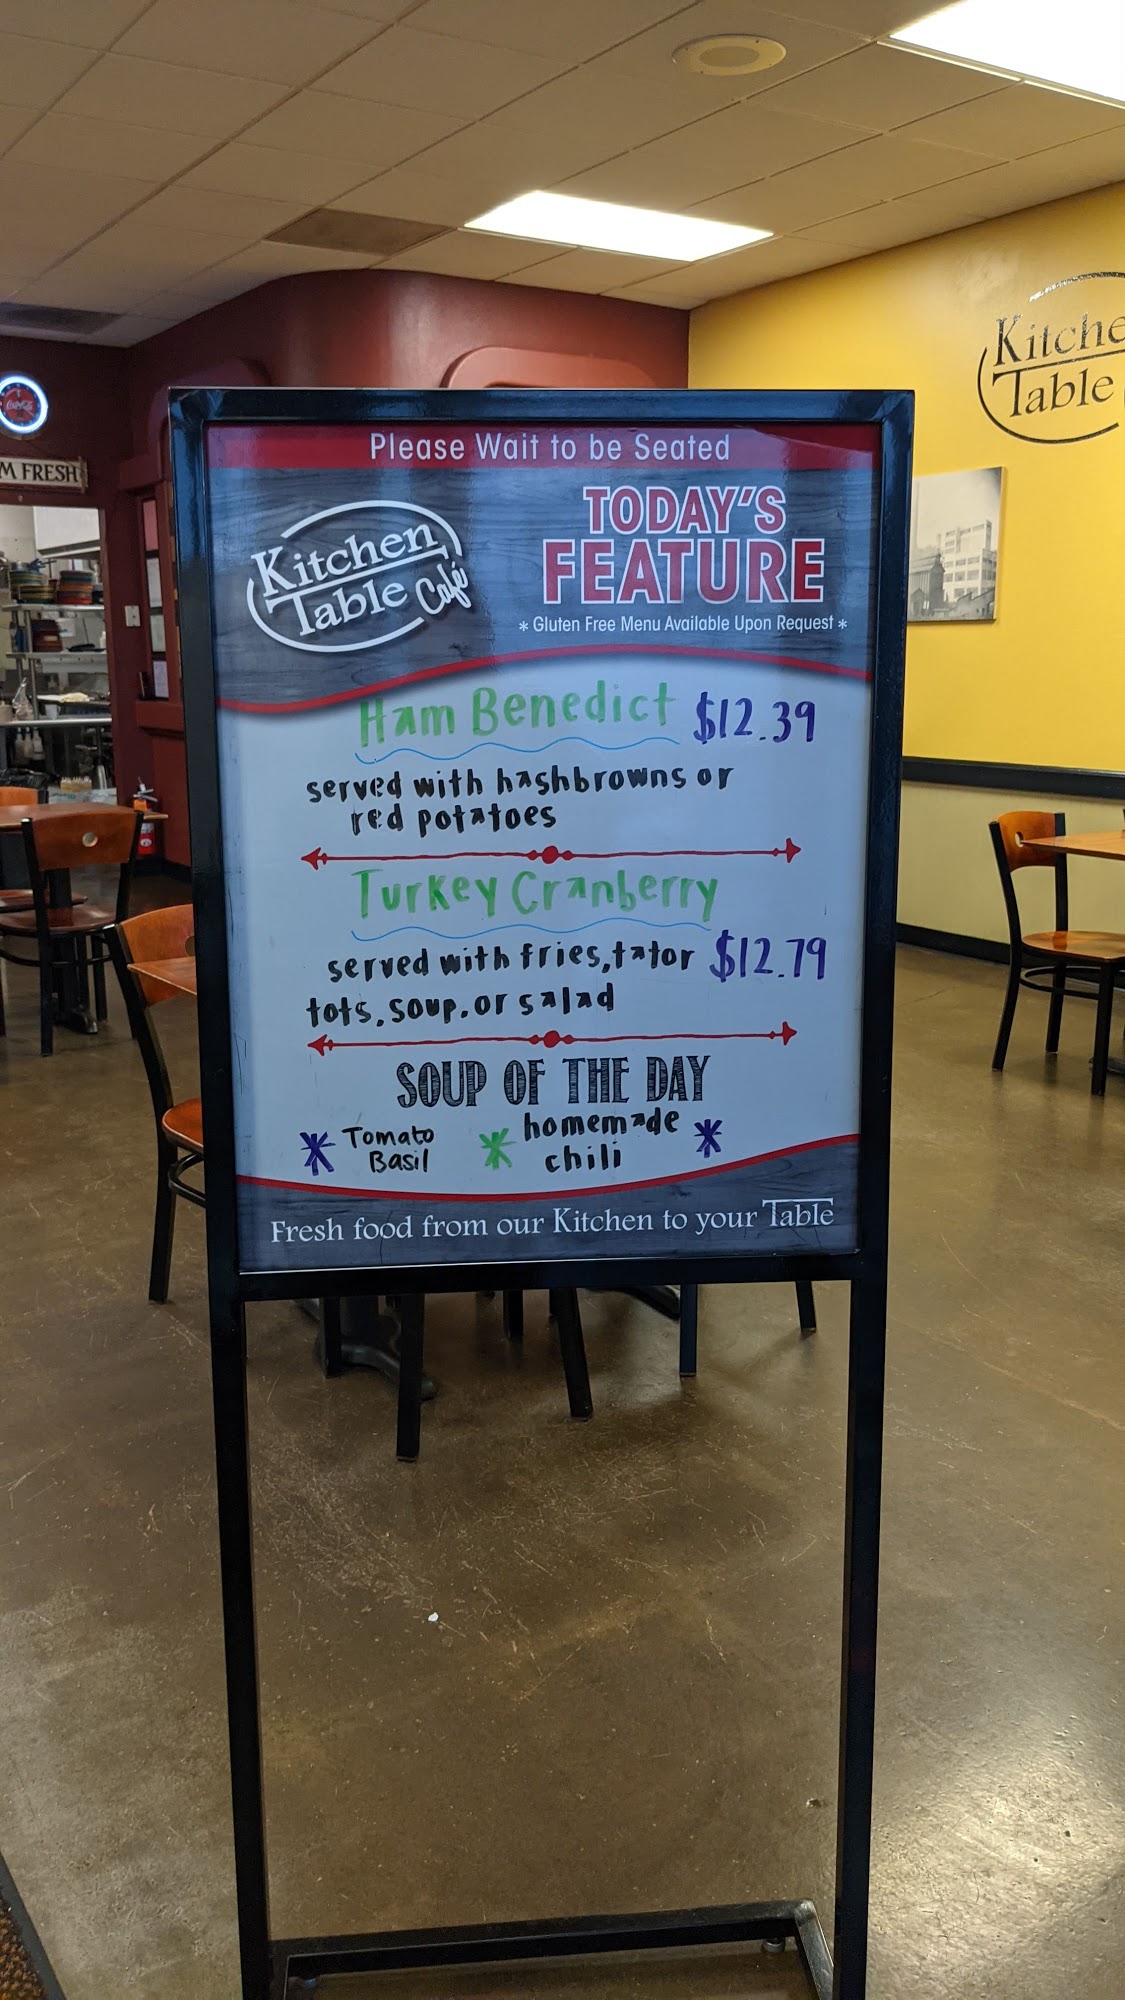 Please Wait to be Seated
Kitchen
Table Café
TODAY'S
FEATURE
* Gluten Free Menu Available Upon Request *
Ham Benedict $12.39
served with hashbrowns or
red potatoes
Turkey Cranberry
served with fries, tator $12.79
tots, soup, or salad
SOUP OF THE DAY
Tomato
Basil
homemade
chili
Fresh food from our Kitchen to your Table
M FRESH
Coca-Cola
Kitche
Table